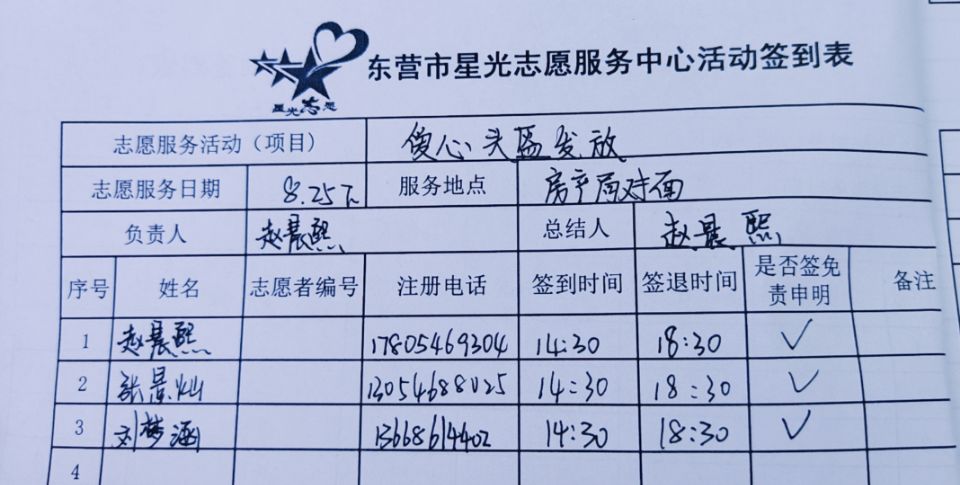 星光志愿
东营市星光志愿服务中心活动签到表
志愿服务活动（项目） 傻心头盔发放
志愿服务日期 8.25下 服务地点 房产局对面
负责人 赵晨熙 总结人 赵晨熙
序号 姓名 志愿者编号 注册电话 签到时间 签退时间 是否签免责申明 备注
1 赵晨熙 17805469304 14:30 18:30 ✓
2 张景灿 13054688025 14:30 18:30 ✓
3 刘梦涵 13668614402 14:30 18:30 ✓
4